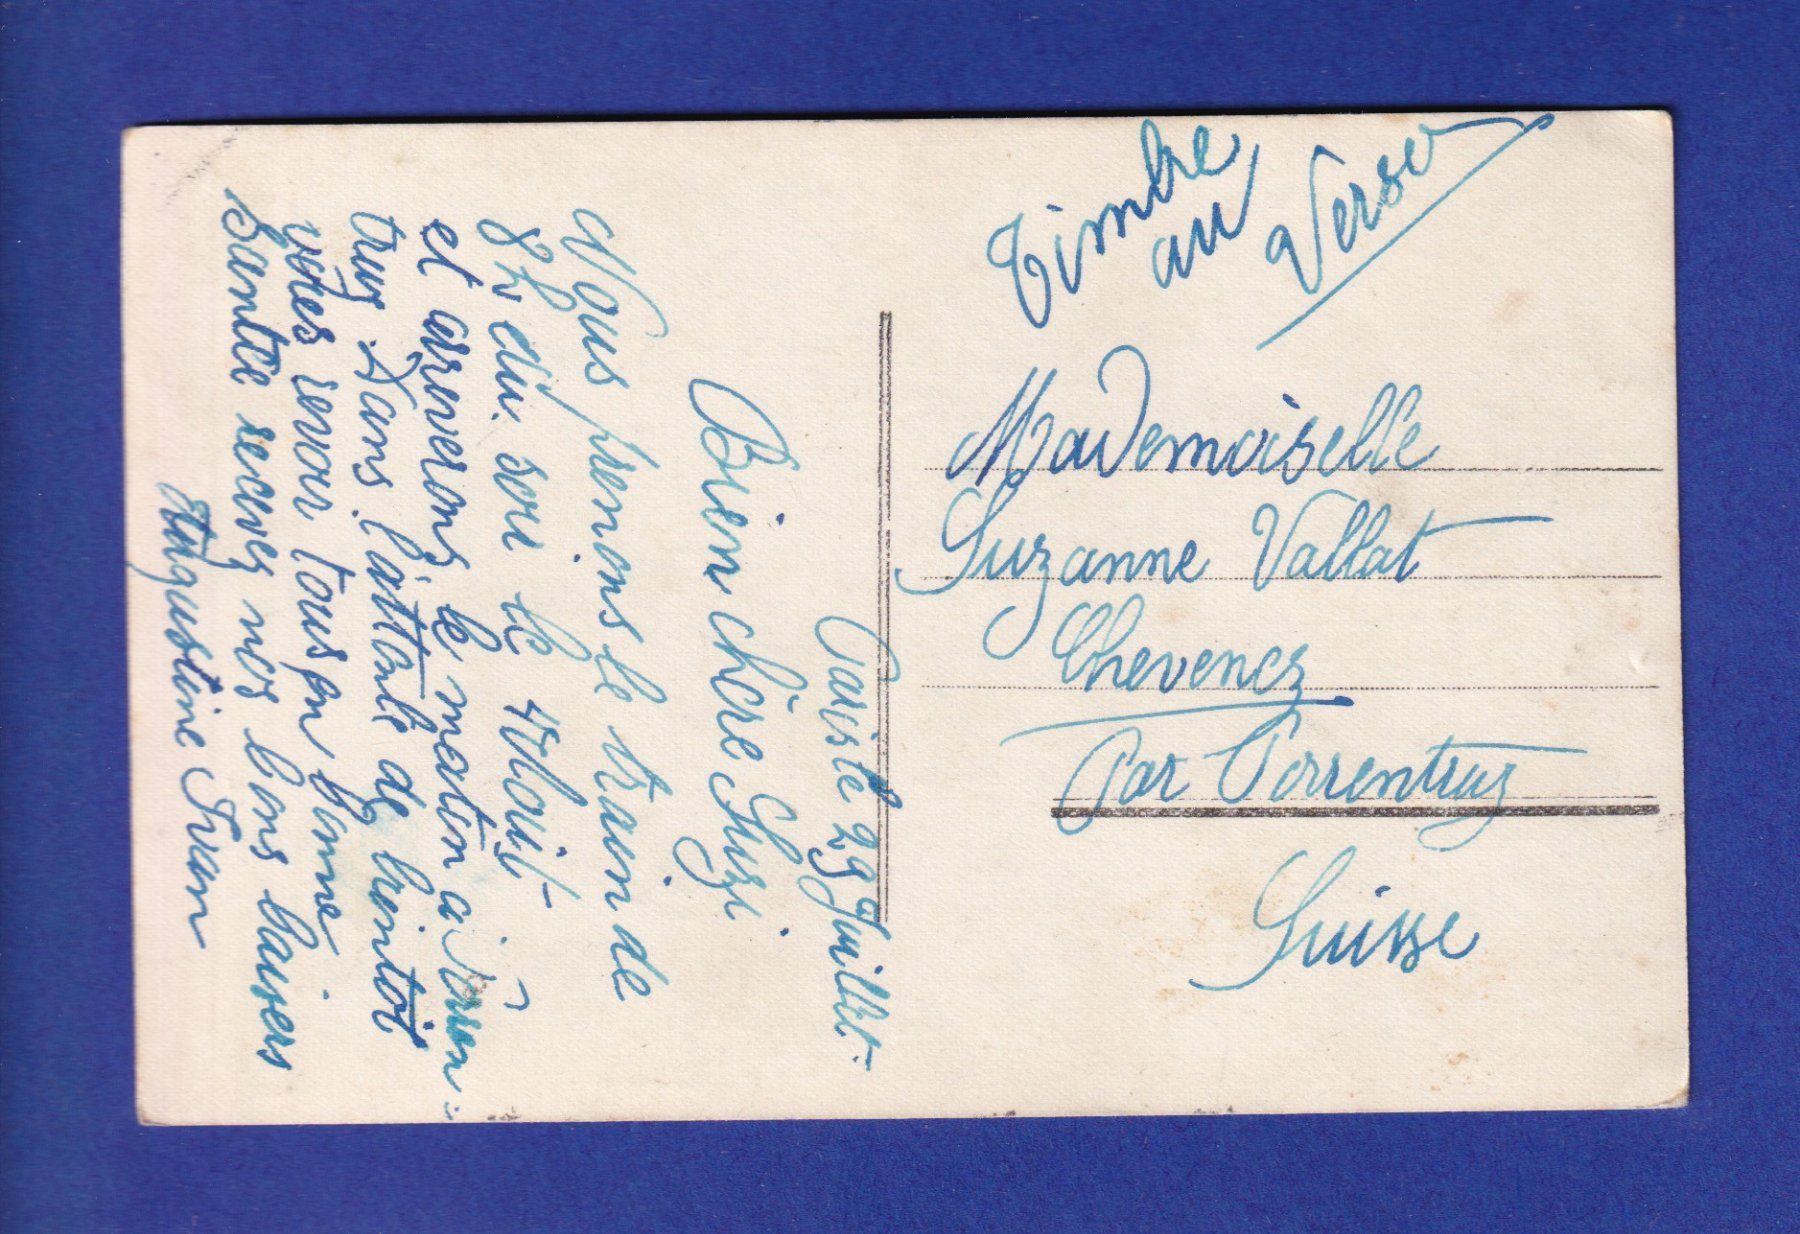 Paris le 29 Juillet
Bien chère Suzi
Nous prenons le train de
8h du soir le 4 Août
et arriverons le matin a Porren-
truy Dans l'attente de bientot
vous revoir tous en bonne
Santée recevez nos bons baisers
Augustine Ivan
Timbre
au
Verso
Mademoiselle
Suzanne Vallat
Chevenez
Par Porrentruy
Suisse